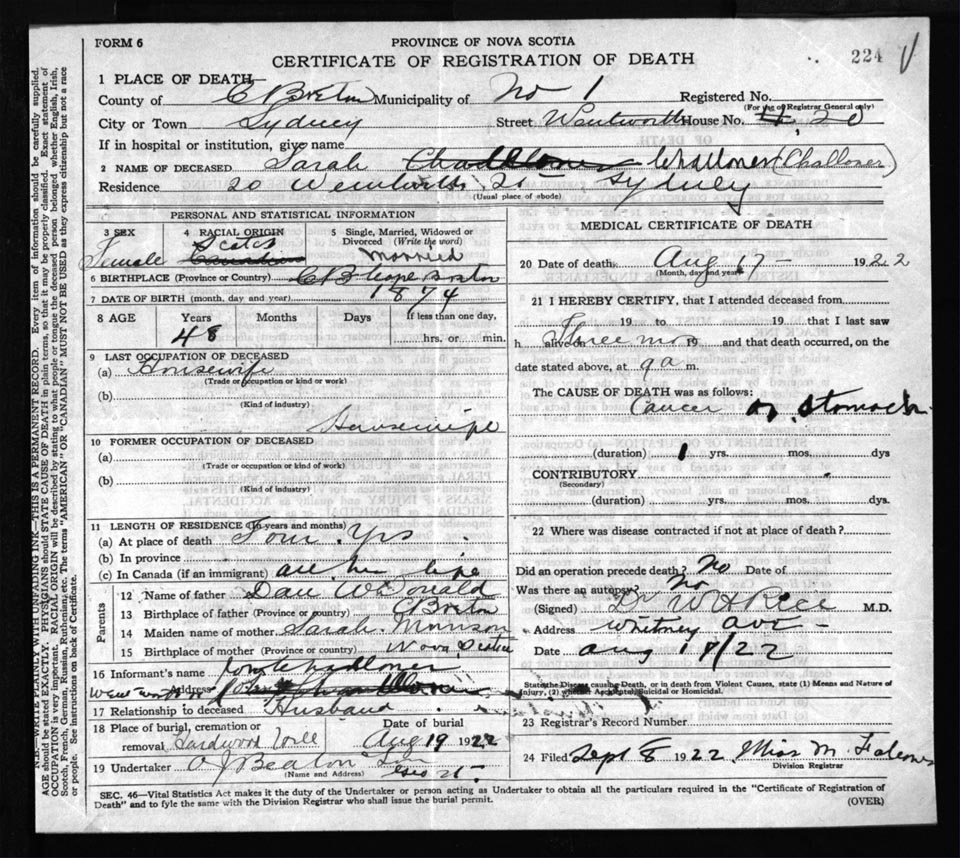 FORM 6
PROVINCE OF NOVA SCOTIA
CERTIFICATE OF REGISTRATION OF DEATH
224
1 PLACE OF DEATH—
County of C Breton Municipality of No 1 Registered No.
(For use of Registrar General only)
City or Town Sydney Street Wentworth House No. 20
If in hospital or institution, give name
2 NAME OF DECEASED Sarah Challoner (Challoner)
Residence 20 Wentworth St Sydney
(Usual place of abode)
PERSONAL AND STATISTICAL INFORMATION
3 SEX 4 RACIAL ORIGIN 5 Single, Married, Widowed or Divorced (Write the word)
Female Scotch Married
6 BIRTHPLACE (Province or Country) C B
7 DATE OF BIRTH (month, day and year) 1874
8 AGE Years Months Days If less than one day,
48 hrs. or min.
9 LAST OCCUPATION OF DECEASED
(a) Housewife
(Trade or occupation or kind or work)
(b)
(Kind of industry)
Housewife
10 FORMER OCCUPATION OF DECEASED
(a)
(Trade or occupation or kind of work)
(b)
(Kind of industry)
11 LENGTH OF RESIDENCE (In years and months)
(a) At place of death Four Yrs
(b) In province
(c) In Canada (if an immigrant) all her life
Parents
12 Name of father Dan McDonald
13 Birthplace of father (Province or country) C Breton
14 Maiden name of mother Sarah Morrison
15 Birthplace of mother (Province or country) Nova Scotia
16 Informant's name Challoner
Address
17 Relationship to deceased Husband
18 Place of burial, cremation or removal Hardwood Hill
Date of burial Aug 19 1922
19 Undertaker A J Beaton
(Name and Address)
MEDICAL CERTIFICATE OF DEATH
20 Date of death Aug 17 1922
(Month, day and year)
21 I HEREBY CERTIFY, that I attended deceased from
19 to 19 that I last saw
h alive on Three mo 19 and that death occurred, on the
date stated above, at 9 a m.
The CAUSE OF DEATH was as follows:
Cancer of Stomach
(duration) 1 yrs. mos. dys
CONTRIBUTORY
(Secondary)
(duration) yrs. mos. dys.
22 Where was disease contracted if not at place of death?
Did an operation precede death? No Date of
Was there an autopsy? No
(Signed) Dr W H Rice M.D.
Address Whitney Ave
Date Aug 18/22
State the Disease causing Death, or in death from Violent Causes, state (1) Means and Nature of
Injury, (2) whether Accidental, Suicidal or Homicidal.
23 Registrar's Record Number
24 Filed Sept 8 1922 Miss M
Division Registrar
SEC. 46—Vital Statistics Act makes it the duty of the Undertaker or person acting as Undertaker to obtain all the particulars required in the "Certificate of Registration of
Death" and to fyle the same with the Division Registrar who shall issue the burial permit.
(OVER)
N.B.—WRITE PLAINLY WITH UNFADING INK—THIS IS A PERMANENT RECORD. Every item of information should be carefully supplied.
AGE should be stated EXACTLY. PHYSICIANS should STATE CAUSE OF DEATH in plain terms, so that it may be properly classified. Exact statement of
OCCUPATION is very important. RACIAL ORIGIN will be described by stating to what people or tongue the deceased person belonged whether English, Irish,
Scotch, French, German, Russian, Ruthenian, etc. The terms "AMERICAN" OR "CANADIAN" MUST NOT BE USED as they express citizenship but not a race
or people. See instructions on back of Certificate.